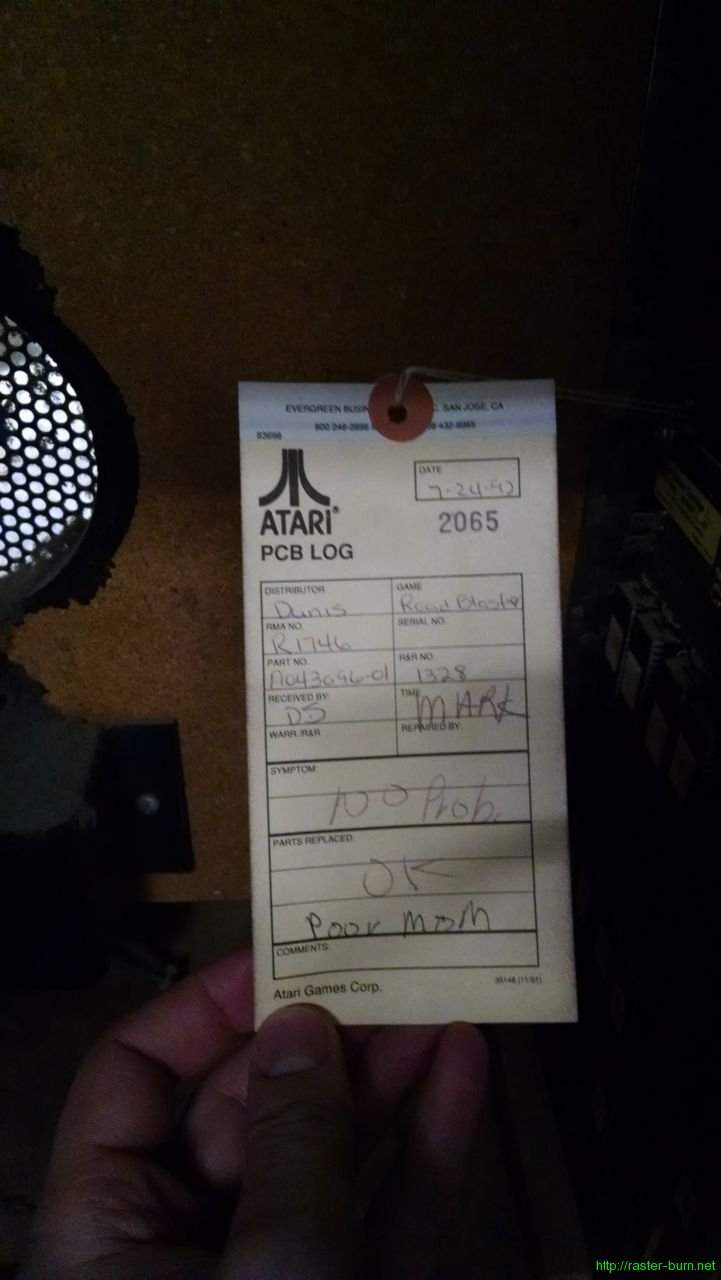 EVERGREEN BUSIN C. SAN JOSE, CA
83698
ATARI®
PCB LOG
DATE
7-24-92
2065
DISTRIBUTOR
GAME
Road Blaster
RMA NO.
R1746
SERIAL NO.
PART NO.
A043096-01
R&R NO.
1328
RECEIVED BY:
DS
TIME
MARK
WARR./R&R
REPAIRED BY:
SYMPTOM:
NO Prob.
PARTS REPLACED:
OK
Poor MOM
COMMENTS:
Atari Games Corp.
http://raster-burn.net